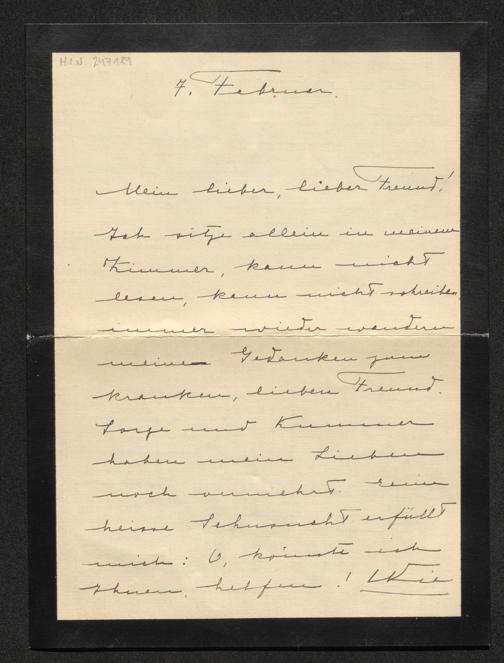 H.I.N. 247189
7. Februar.
Mein lieber, lieber Freund!
Ich sitze allein in meinem
Zimmer, kann nicht
lesen, kann nicht schreiben
immer wieder wandern
meine Gedanken zum
kranken, lieben Freund.
Sorge und Kummer
haben mein Lieben
noch vermehrt. Eine
heisse Sehnsucht erfüllt
mich: O, könnte ich
Ihnen, helfen! Wie